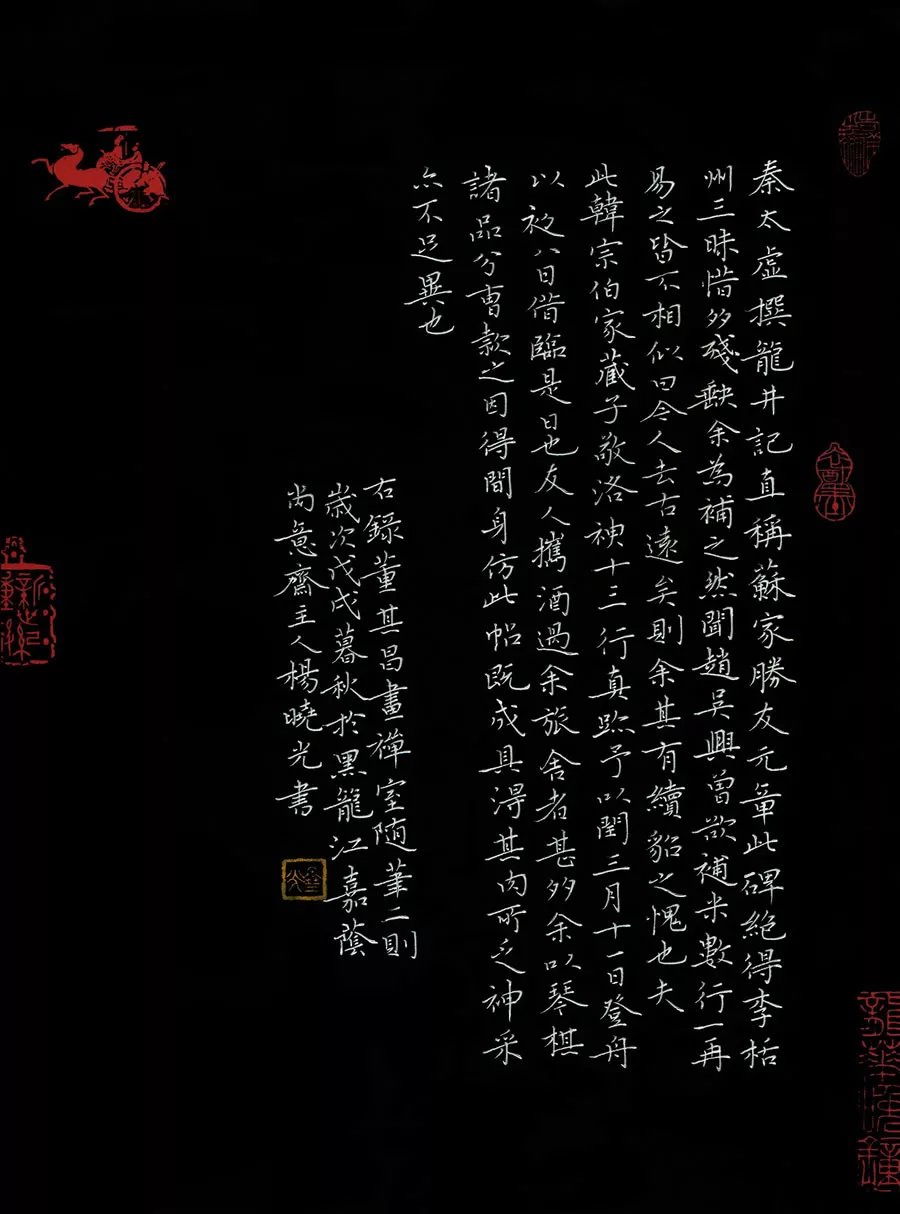 秦太虛撰龍井記直稱蘇家勝友元章此碑絕得李栝
州三昧惜多殘缺余為補之然聞趙吳興曾欲補米數行一再
易之皆不相似曰今人去古遠矣則余其有續貂之愧也夫
此韓宗伯家藏子敬洛神十三行真跡予以閏三月十一日登舟
以初八日借臨是日也友人攜酒過余旅舍者甚多余以琴棋
諸品分曹款之因得閒身仿此帖既成具得其肉所乏神采
亦不足異也
右錄董其昌畫禪室隨筆二則
歲次戊戌暮秋於黑龍江嘉蔭
尚意齋主人楊曉光書